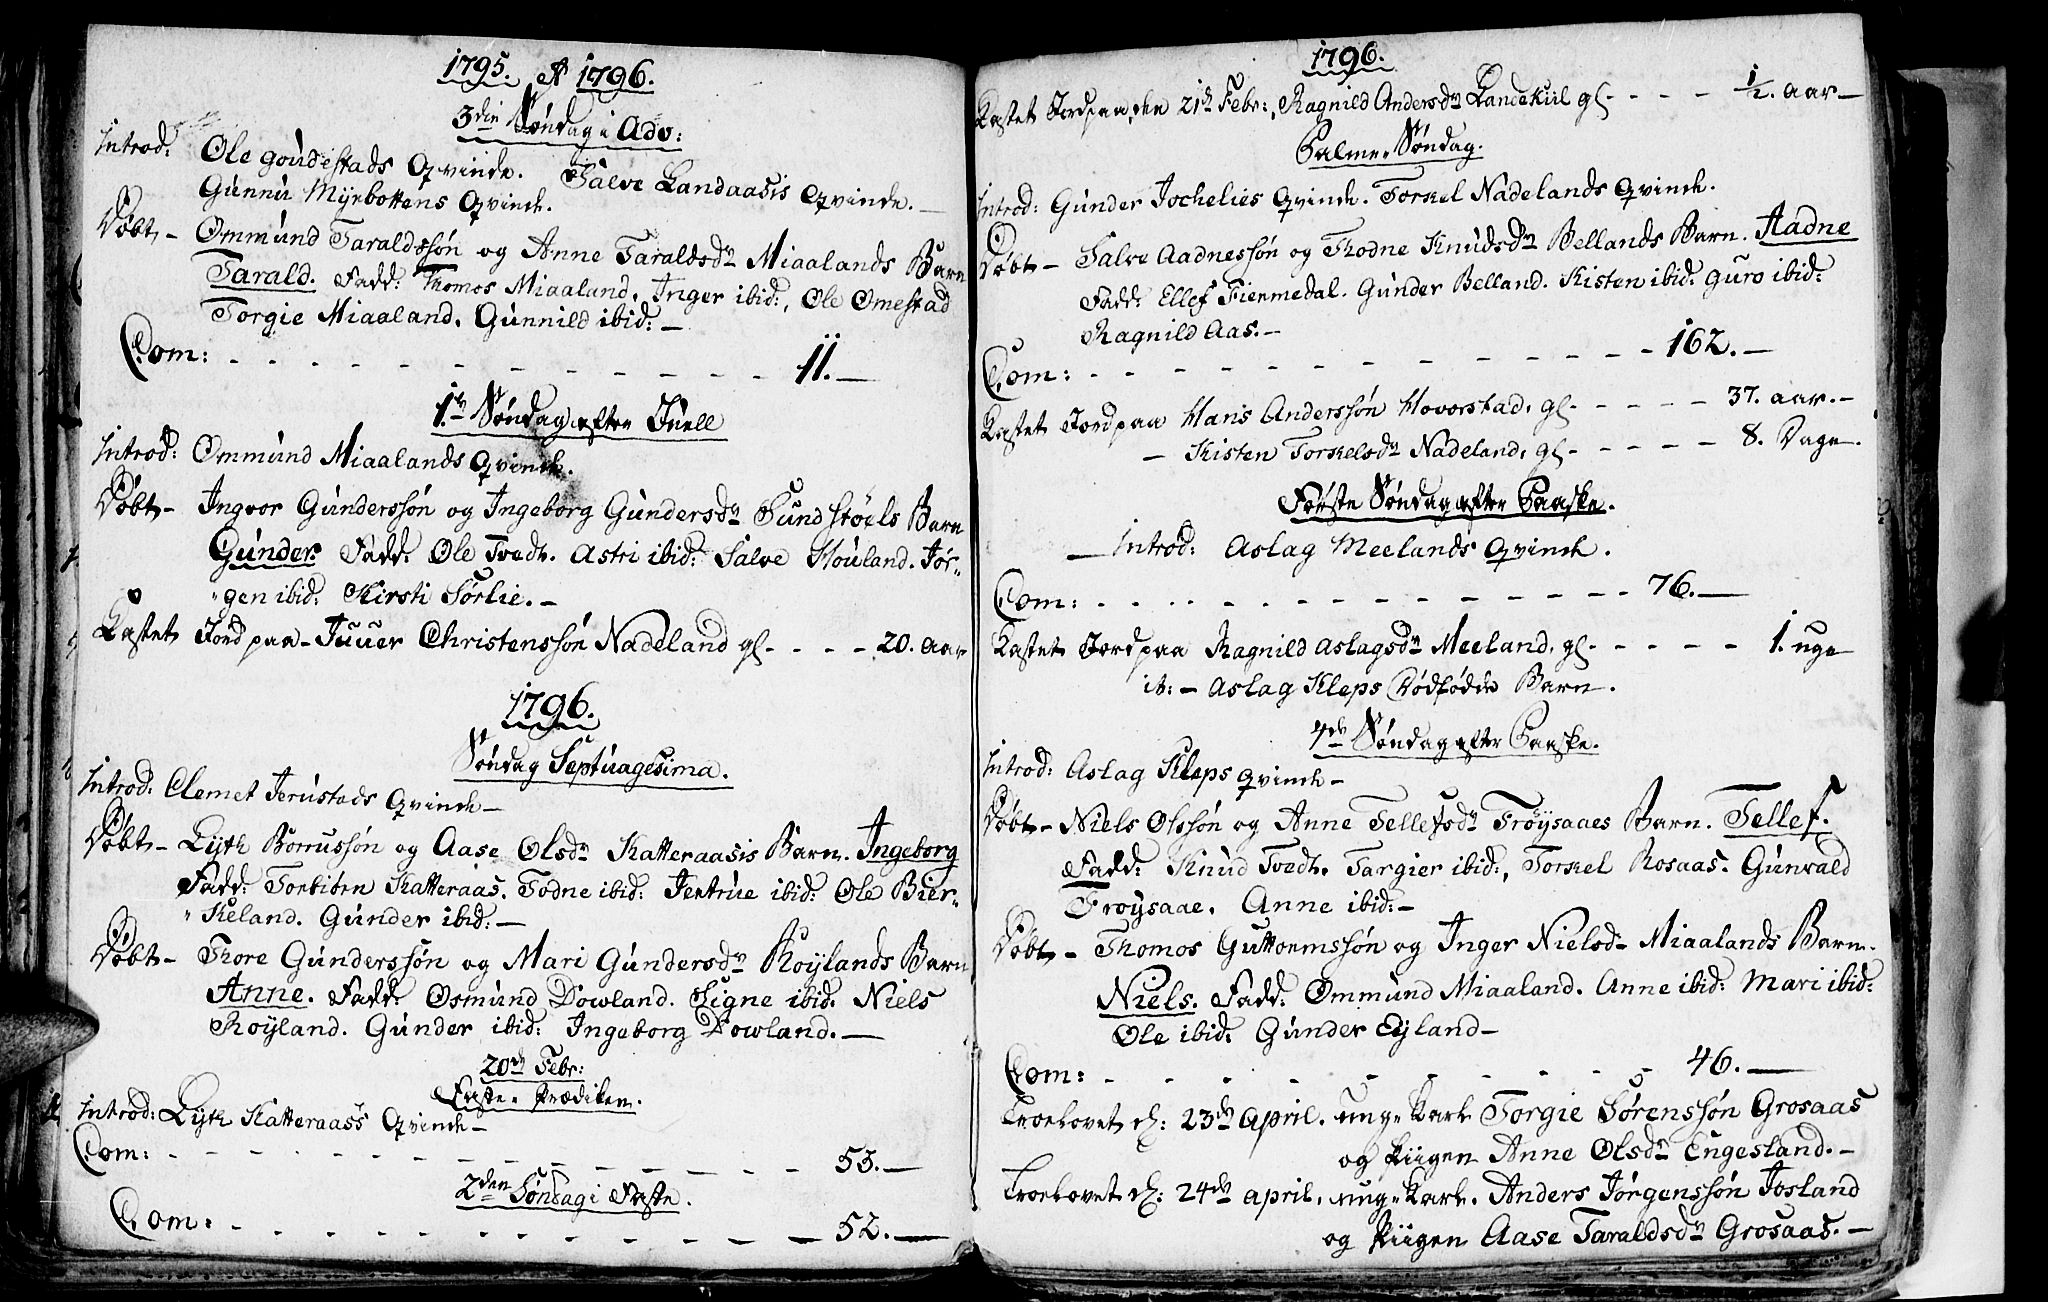 1795. et 1796.
3die Søndag i Adv:
Introd: Ole goudestads Qvinde. Salve Landaasis Qvinde. –
Gunnu Myrbottens Qvinde.
Døbt – Ommund Taraldssøn og Anne Taraldsdr Miaalands Barn
Tarald. Fadd: Thomos Miaaland, Inger ibid:, Ole Omestad
Torgie Miaaland. Gunnild ibid: –
Com: - - - - - - - - - - 11. –
1te Søndag efter Juell
Introd: Ommund Miaalands Qvinde.
Døbt – Ingvor Gunderssøn og Ingeborg Gundersdr Sundstøels Barn
Gunder. Fadd: Ole Tvedt. Astri ibid: Salve Houland. Jør-
"gen ibid: Kirsti Sørlie. –
Kastet Jord paa – Juuer Christenssøn Nadeland gl - - - - 20. aar
1796.
Søndag Septuagesima.
Introd. Clemet Jerustads Qvinde –
Døbt – Lyth Borrussøn og Aase Olsdr Katteraasis Barn. Ingeborg
Fadd: Torbiörn Katteraas. Todne ibid: Jertrue ibid: Ole Bier-
"Keland. Gunder ibid: –
Døbt – Thore Gunderssøn og Mari Gundersdr Røylands Barn
Anne. Fadd: Osmund Dowland. Signe ibid. Niels
Røyland. Gunder ibid: Ingeborg Dowland. –
20de Febr:
Faste-Prædiken.
Introd: Lyth Katteraass Qvinde –
Com: - - - - - - - - - - 53. –
2den Søndag i Faste.
Com: - - - - - - - - - - 52. –
1796.
Kastet Jord paa, den 21de Febr:, Ragnild Andersdr Landekiil gl - - - - 1/2. aar –
Palme-Søndag.
Introd: Gunder Jochelies Qvinde. Torkel Nadelands Qvinde.
Døbt – Salve Aadnessøn og Thodne Knudsdr Bellands Barn. Aadne
Fadd: Ellef Fiermedal. Gunder Belland. Kisten ibid: Guro ibid:
Ragnild Aas. –
Com: - - - - - - - - - - 162. –
Kastet Jord paa Hans Anderssøn Hovorstad, gl - - - - - 37. aar. –
– Kisten Torkelsdr Nadeland, gl - - - - - 8. Dage.
Første Søndag efter Paaske.
– Introd: Aslag Meelands Qvinde.
Com: - - - - - - - - - - 76. –
Kastet Jord paa Ragnild Aslagsdr Meeland, gl - - - - - 1. uge
it: – Aslag Kleps Dødfødde Barn.
4de Søndag efter Paaske.
Introd: Aslag Kleps Qvinde –
Døbt – Niels Olssøn og Anne Tellefsdr Frøysaaes Barn. Tellef.
Fadd: Knud Tvedt. Targier ibid:, Torkel Rosaas. Gunvald
Frøysaae. Anne ibid: –
Døbt – Thomos Guttormssøn og Inger Nielsdr Miaalands Barn.
Niels. Fadd: Ommund Miaaland. Anne ibid: Mari ibid:
Ole ibid: Gunder Eyland –
Com: - - - - - - - - - - 46. –
Troelovet d: 23de April. unge Karl Torgie Sørenssøn Grosaas
og Piigen Anne Olsdr Engesland. –
Troelovet d: 24de April. unge Karl. Anders Jørgenssøn Josland
og Piigen Aase Taraldsdr Grosaas. –